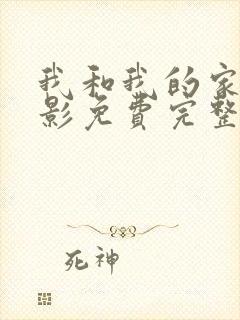 我和我的家
影免费完整
死神